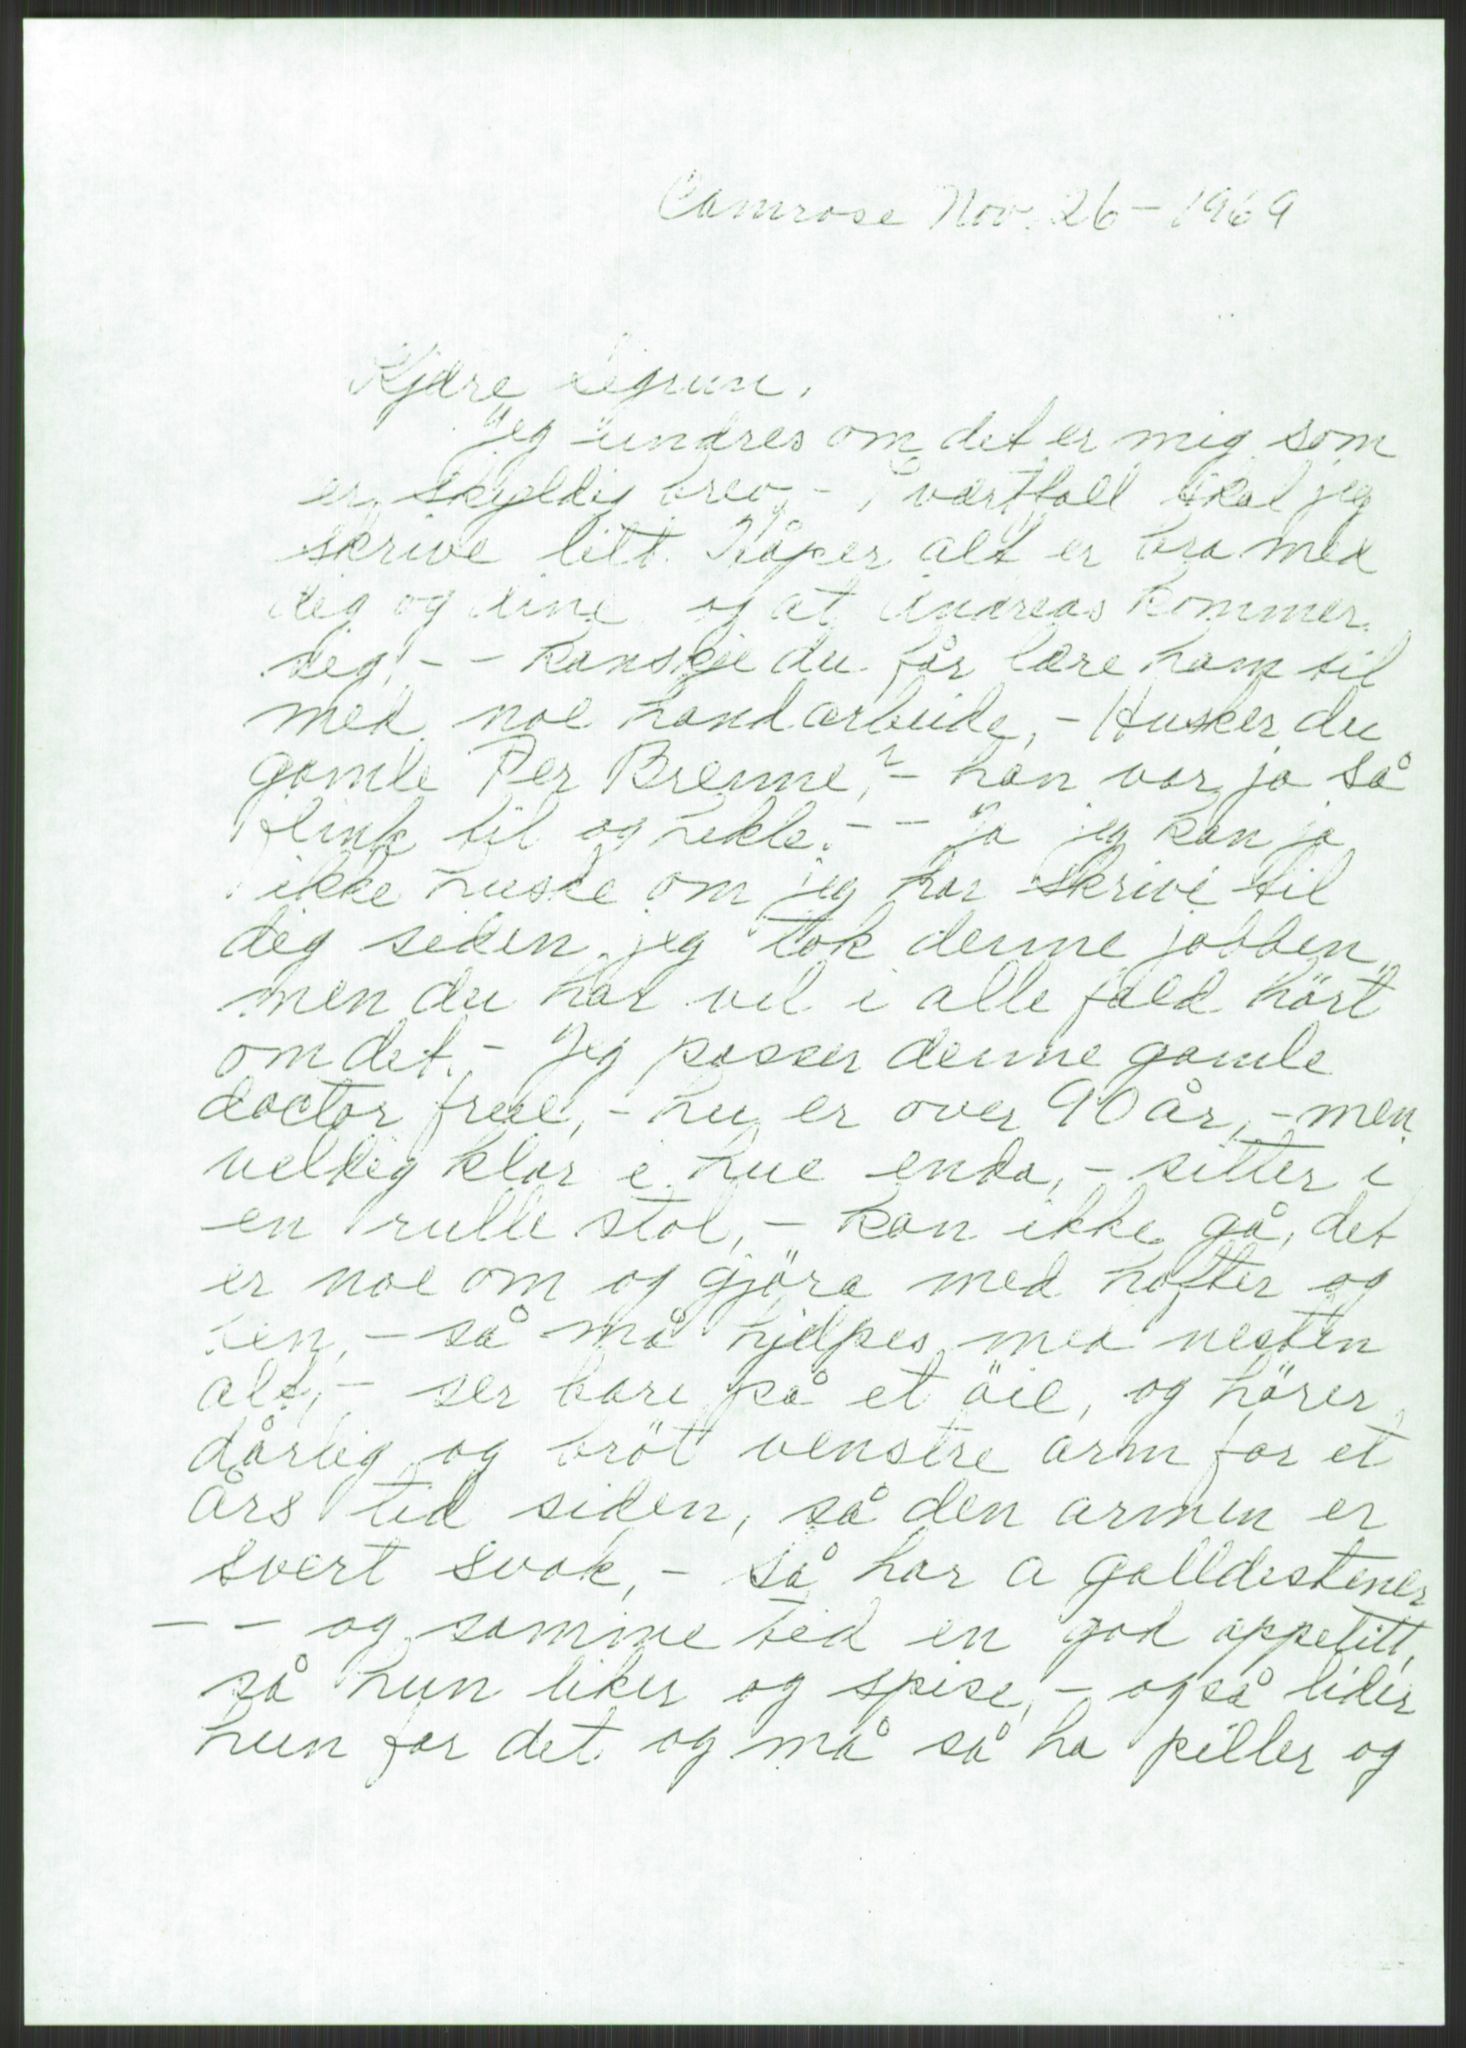 Camrose Nov. 26 - 1969
Kjære Sigrun.
Jeg undres om det er mig som
er skyldig brev, - i værtfall skal jeg
skrive litt. Håper alt er bra med
dig og dine og at Andreas kommer
seg, - - kanskje du får lære ham til
med noe handarbeide, - Husker du
gamle Per Brenne,? - han var jo så
flink til og hekle. - - Ja jeg kan jo
ikke huske om jeg har skrive til
dig siden jeg tok denne jobben,
men du har vel i alle fald hört
om det. - Jeg passer denne gamle
doctor frue, - hu er over 90 år, - men
veldig klar i hue enda, - sitter i
en rulle stol, - kan ikke gå, det
er noe om og gjöra med hofter og
ben, - så må hjelpes med nesten
alt, - ser bare på et öie, og hörer
dårlig og bröt venstre arm for et
års tid siden, så den armen er
svert svak, - så har a galldestener
- - og samme tid en god appetitt,
så hun liker og spise, - også lider
hun for det og må så ha piller og